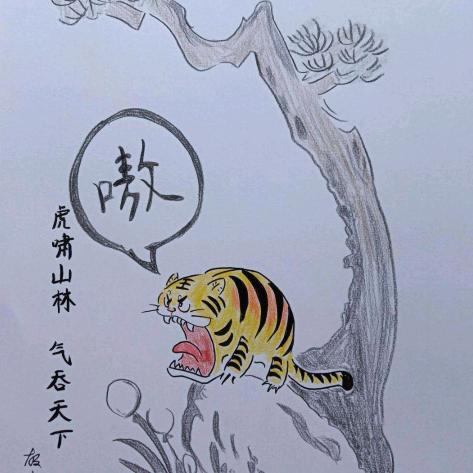 嗷
虎啸山林 气吞天下